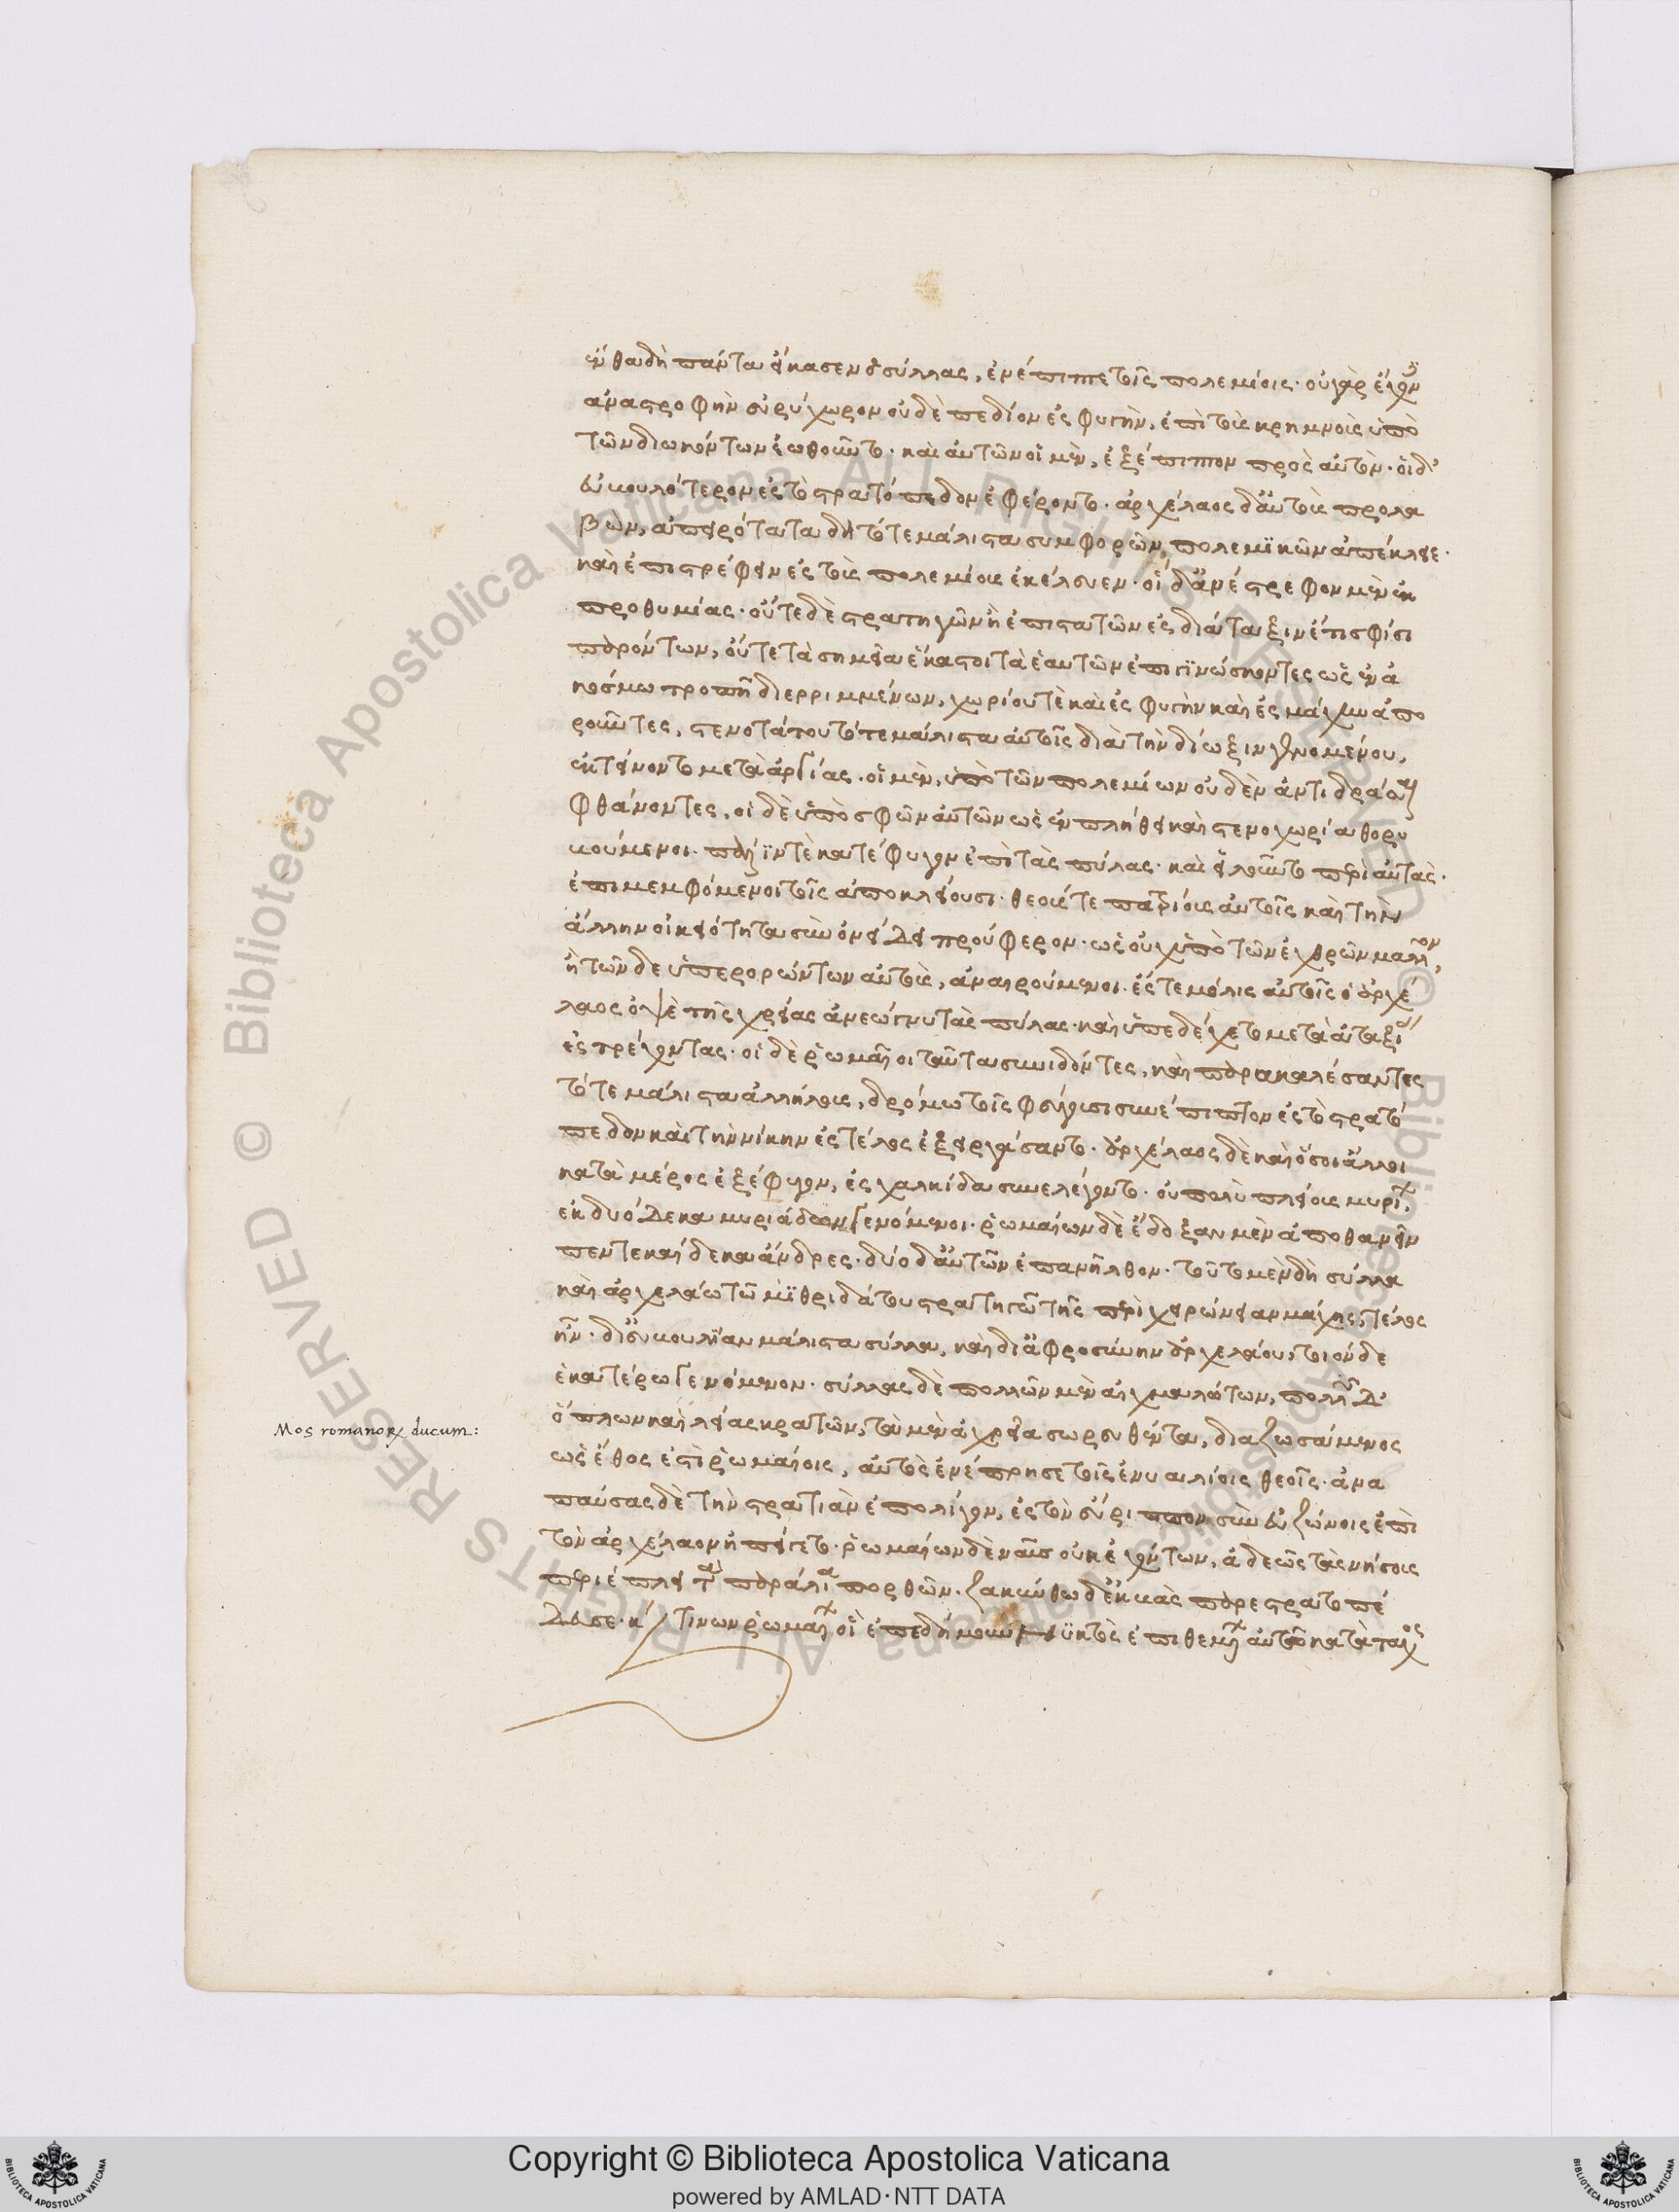 ἔνθα δὴ πάντα ᾔκασεν ὁ σύλλας, ἐνέπιπτε τοῖς πολεμίοις· οὐ γὰρ ἔχον
ἀναστροφὴν εὐρύχωρον οὐδὲ πεδίον ἐς φυγὴν, ἐπὶ τοὺς κρημνοὺς ὑπὸ
τῶν διωκόντων ἐωθοῦντο· καὶ αὐτῶν οἱ μὲν, ἐξέπιπτον πρὸς αὐτὸν· οἱ δ'
εὐκουλότερον ἐς τὸ στρατόπεδον ἐφέροντο· ἀρχέλαος δ' αὐτοὺς προλα
βὼν, ἀπειρότατα δὴ τότε μάλιστα συμφορῶν πολεμϊκῶν ἀπέκλειε·
καὶ ἐπιστρέφειν ἐς τοὺς πολεμίους ἐκέλευεν· οἱ δ' ἀνέστρεφον μὲν ἐκ
προθυμίας· οὔτε δὲ στρατηγῶν ἢ ἐπιστατῶν ἐς διάταξιν ἔτι σφίσι
παρόντων, οὔτε τὰ σημεῖα ἕκαστοι τὰ ἑαυτῶν ἐπιγϊνώσκοντες ὡς ἐν ἀ
κόσμω τροπῆ διερριμμένων, χωρίου τὲ καὶ ἐς φυγὴν καὶ ἐς μάχην ἀπο
ροῦντες, στενοτάτου τότε μάλιστα αὐτοῖς διὰ τὴν δίωξιν γενομένου,
ἐκτείνοντο μετὰ ἀργίας· οἱ μὲν, ὑπὸ τῶν πολεμίων οὐδὲν ἀντιδρᾶσαι
φθάνοντες, οἱ δὲ ὑπὸ σφῶν αὐτῶν ὡς ἐν πλήθει καὶ στενοχωρία θορυ
κούμενοι· πάλϊν τὲ κατέφυγον ἐπὶ τὰς πύλας· καὶ εἰλοῦντο περὶ αὐτὰς·
ἐπιμεμφόμενοι τοῖς ἀποκλείουσι· θεούς τε πατρίους αὐτοῖς καὶ τὴν
ἄλλην οἰκειότητα σὺν ὀνείδει προύφερον· ὡς οὐχ ὑπὸ τῶν ἐχθρῶν μᾶλλον
ἢ τῶνδε ὑπερορώντων αὐτοὺς, ἀναιρούμενοι· ἔς τε μόλις αὐτοῖς ὁ ἀρχέ
λαος ὀψὲ τῆς χρείας ἀνεώγνυ τὰς πύλας· καὶ ὑπεδέχετο μετὰ ἀταξίας
ἐς τρέχοντας· οἱ δὲ ῥωμαῖοι ταῦτα συνιδόντες, καὶ παρακαλέσαντες
τότε μάλιστα ἀλλήλους, δρόμω τοῖς φεύγουσι συνέπιπτον ἐς τὸ στρατό
πεδον καὶ τὴν νίκην ἐς τέλος ἐξειργάσαντο· ἀρχέλαος δὲ καὶ ὅσοι ἄλλοι
κατὰ μέρος ἐξέφυγον, ἐς χαλκίδα συνελέγοντο· οὐ πολὺ πλείους μυρίων,
ἐκ δυόδεκα μυριάδων γενόμενοι· ῥωμαίων δὲ ἔδοξαν μὲν ἀποθανεῖν
πεντεκαίδεκα ἄνδρες· δύο δ' αὐτῶν ἐπανῆλθον· τοῦτο μὲν δὴ σύλλα
καὶ ἀρχελάω τῶ μϊθριδάτου στρατηγῶ τῆς περὶ χειρώνειαν μάχης, τέλος
ἦν· δι' εὐκουλϊαν μάλιστα σύλλα, καὶ δι' ἀφροσύνην ἀρχελάου, τοιόνδε
ἑκατέρω γενόμενον· σύλλας δὲ πολλῶν μὲν αἰχμαλώτων, πολλῶν δ'
ὅπλων καὶ λείας κρατῶν, τὰ μὲν ἀχρεῖα σωρευθέντα, διαζωσάμενος
ὡς ἔθος ἐστὶ ῥωμαίοις, αὐτὸς ἐνέπρησε τοῖς ἐνυαλίοις θεοῖς· ἀνα
παύσας δὲ τὴν στρατιὰν ἐπ' ολίγον, ἐς τὸν εὔριππον σὺν εὐζώνοις ἐπὶ
τὸν ἀρχέλαον ἠπείγετο· ῥωμαίων δὲ ναῦς οὐκ ἐχόντων, ἀδεῶς τὰς νήσους
περιέπλει τὰ παράλια πορθῶν· ζακύνθω δ' ἐκβὰς παρεστρατοπέ
δευσε· καὶ τινων ῥωμαίων οἳ ἐπεδήμουν νϋκτὸς ἐπιθεμένων αὐτῶ κατὰ τάχος
Mos romanorum ducum: